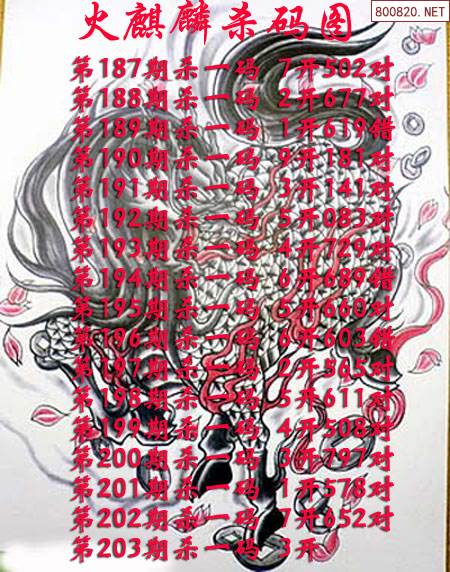 800820.NET
火麒麟杀码图
第187期杀一码 7开502对
第188期杀一码 2开677对
第189期杀一码 1开619错
第190期杀一码 9开181对
第191期杀一码 3开141对
第192期杀一码 5开083对
第193期杀一码 4开729对
第194期杀一码 6开689错
第195期杀一码 5开660对
第196期杀一码 6开603错
第197期杀一码 2开565对
第198期杀一码 5开611对
第199期杀一码 4开508对
第200期杀一码 3开797对
第201期杀一码 1开578对
第202期杀一码 7开652对
第203期杀一码 3开